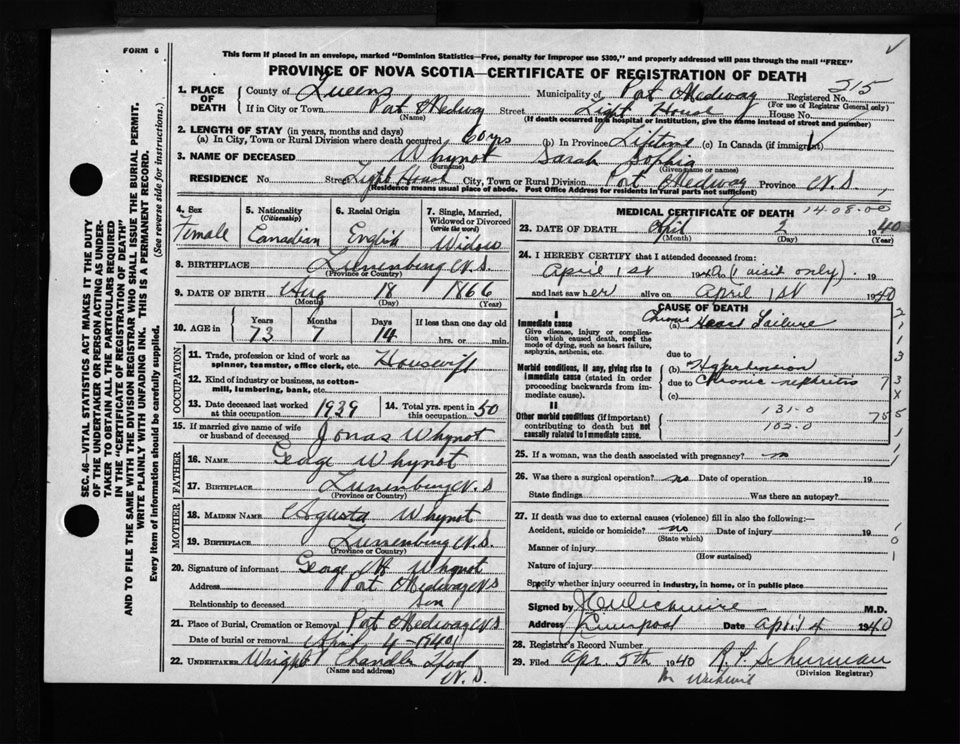 FORM 6
This form if placed in an envelope, marked "Dominion Statistics—Free, penalty for improper use $300," and properly addressed will pass through the mail "FREE"
PROVINCE OF NOVA SCOTIA—CERTIFICATE OF REGISTRATION OF DEATH
SEC. 46—VITAL STATISTICS ACT MAKES IT THE DUTY
OF THE UNDERTAKER OR PERSON ACTING AS UNDER-
TAKER TO OBTAIN ALL THE PARTICULARS REQUIRED
IN THE "CERTIFICATE OF REGISTRATION OF DEATH"
AND TO FILE THE SAME WITH THE DIVISION REGISTRAR WHO SHALL ISSUE THE BURIAL PERMIT.
WRITE PLAINLY WITH UNFADING INK. THIS IS A PERMANENT RECORD.
Every item of information should be carefully supplied. (See reverse side for instructions.)
1. PLACE OF DEATH County of Queens Municipality of Port Medway Registered No. 515
(For use of Registrar General only)
If in City or Town Port Medway Street Light House House No.
(Name) (If death occurred in a hospital or institution, give the name instead of street and number)
2. LENGTH OF STAY (in years, months and days)
(a) In City, Town or Rural Division where death occurred 60 yrs (b) In Province Lifetime (c) In Canada (if immigrant)
3. NAME OF DECEASED Whynot Sarah Sophia
(Surname) (Given name or names)
RESIDENCE No. Street Light House City, Town or Rural Division Port Medway Province N.S.
(Residence means usual place of abode. Post Office Address for Residents in rural parts not sufficient)
4. Sex Female
5. Nationality (Citizenship) Canadian
6. Racial Origin English
7. Single, Married, Widowed or Divorced (write the word) Widow
8. BIRTHPLACE Lunenburg N.S.
(Province or Country)
9. DATE OF BIRTH Aug 18 1866
(Month) (Day) (Year)
10. AGE in Years 73 Months 7 Days 14 If less than one day old
hrs. or min.
OCCUPATION
11. Trade, profession or kind of work as spinner, teamster, office clerk, etc. Housewife
12. Kind of industry or business, as cotton-mill, lumbering, bank, etc.
13. Date deceased last worked at this occupation 1939 14. Total yrs. spent in this occupation 50
15. If married give name of wife or husband of deceased Jonas Whynot
FATHER
16. NAME George Whynot
17. BIRTHPLACE Lunenburg N.S
(Province or Country)
MOTHER
18. MAIDEN NAME Agusta Whynot
19. BIRTHPLACE Lunenburg N.S.
(Province or Country)
20. Signature of informant George H Whynot
Address Port Medway N.S
Relationship to deceased Son
21. Place of Burial, Cremation or Removal Port Medway N.S
Date of burial or removal April 4 - 1940
22. UNDERTAKER Wright Chandler Lpool N.S.
(Name and address)
MEDICAL CERTIFICATE OF DEATH 14-08-00
23. DATE OF DEATH April 2 1940
(Month) (Day) (Year)
24. I HEREBY CERTIFY that I attended deceased from:
April 1st 1940 (1 visit only). 19
and last saw her alive on April 1st 1940
CAUSE OF DEATH
I
Immediate cause
Give disease, injury or complication which caused death, not the mode of dying, such as heart failure, asphyxia, asthenia, etc.
(a) Chronic Heart Failure
due to
Morbid conditions, if any, giving rise to immediate cause (stated in order proceeding backwards from immediate cause).
(b) Hypertension
due to Chronic nephritis
(c)
II
Other morbid conditions (if important) contributing to death but not causally related to immediate cause.
131-0
102.0
25. If a woman, was the death associated with pregnancy? no
26. Was there a surgical operation? no Date of operation 19
State findings Was there an autopsy?
27. If death was due to external causes (violence) fill in also the following:—
Accident, suicide or homicide? no Date of injury 19
(State which)
Manner of injury
(How sustained)
Nature of injury
Specify whether injury occurred in industry, in home, or in public place
Signed by M.D.
Address Liverpool Date April 4 1940
28. Registrar's Record Number
29. Filed Apr. 5th 1940 R.P. Schurman
(Division Registrar)